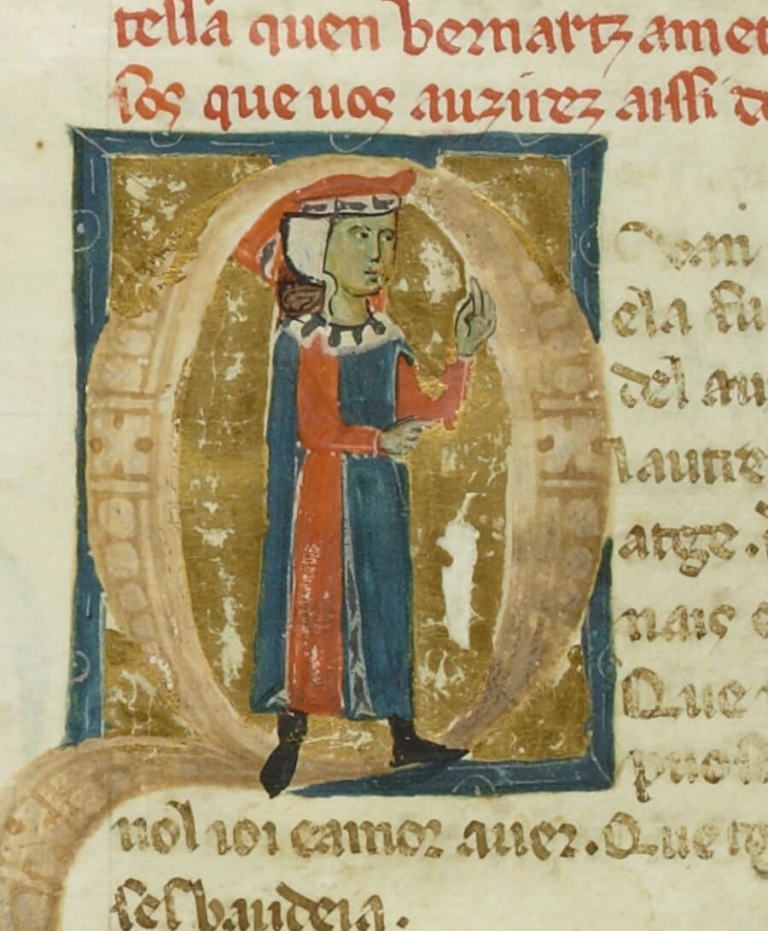 tella quen bernartz amet
sos que uos auzirez aissi de
Quan
ela fu
del au
lautre
atge.
nais e
Que
puois
uol ioi eamor auer. Que
ses baudeia.